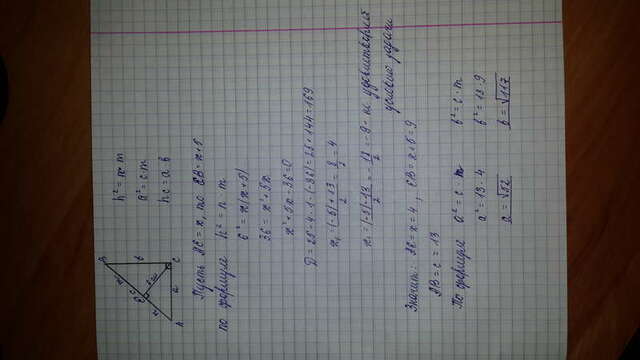 h² = n m
a² = c · m
h c = a b
B
b
C
a
A
Пусть AE = x, то EB = x+5
по формуле h² = n m
6² = x(x+5)
36 = x²+5x
x²+5x-36=0
D = 25-4·1·(-36) = 25+144=169
x₁ = (-5)+13 / 2 = 8/2 = 4
x₂ = (-5)-13 / 2 = -18/2 = -9 - не удовлетворяет
условию задачи
Значит: AE = x = 4, EB = x+5 = 9
AB = c = 13
По формуле a² = c · m b² = c · m
a² = 13 · 4 b² = 13 · 9
a = √52 b = √117